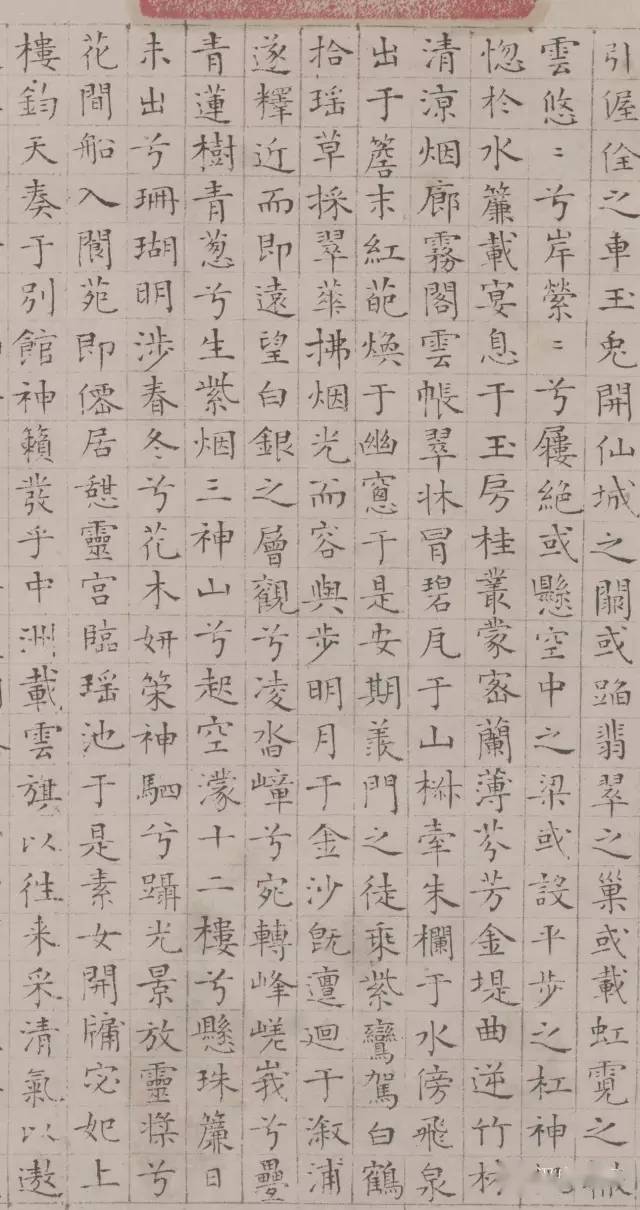 引偓佺之車玉兎開仙城之關或蹈翡翠之巢或載虹霓之
雲悠〻兮岸縈〻兮屧絶或懸空中之梁或設平步之杠神
惚於水簾載宴息于玉房桂叢蒙密蘭薄芬芳金堤曲逆竹
清涼烟廊霧閣雲帳翠牀冒碧瓦于山牽朱欄于水傍飛泉
出于簷末紅葩煥于幽窻于是安期羨門之徒乘紫鸞駕白鶴
拾瑶草採翠華拂烟光而容與步明月于金沙既邅迴于溆浦
遂釋近而即遠望白銀之層觀兮凌沓嶂兮宛轉峰嵯峩兮疊
青蓮樹青葱兮生紫烟三神山兮起空濛十二樓兮懸珠簾日
未出兮珊瑚明涉春冬兮花木妍策神駟兮躡光景放靈槳兮
花間船入閬苑即僊居憇靈宫臨瑶池于是素女開牗宓妃上
樓鈞天奏于別館神籟發乎中洲載雲旗以往来采清氣以遨